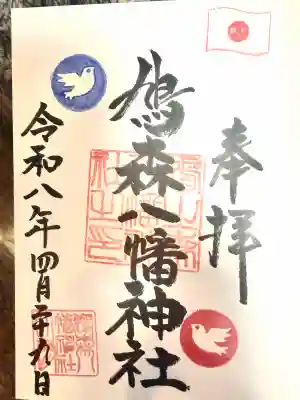 奉拝
鳩森八幡神社
令和八年四月二十九日